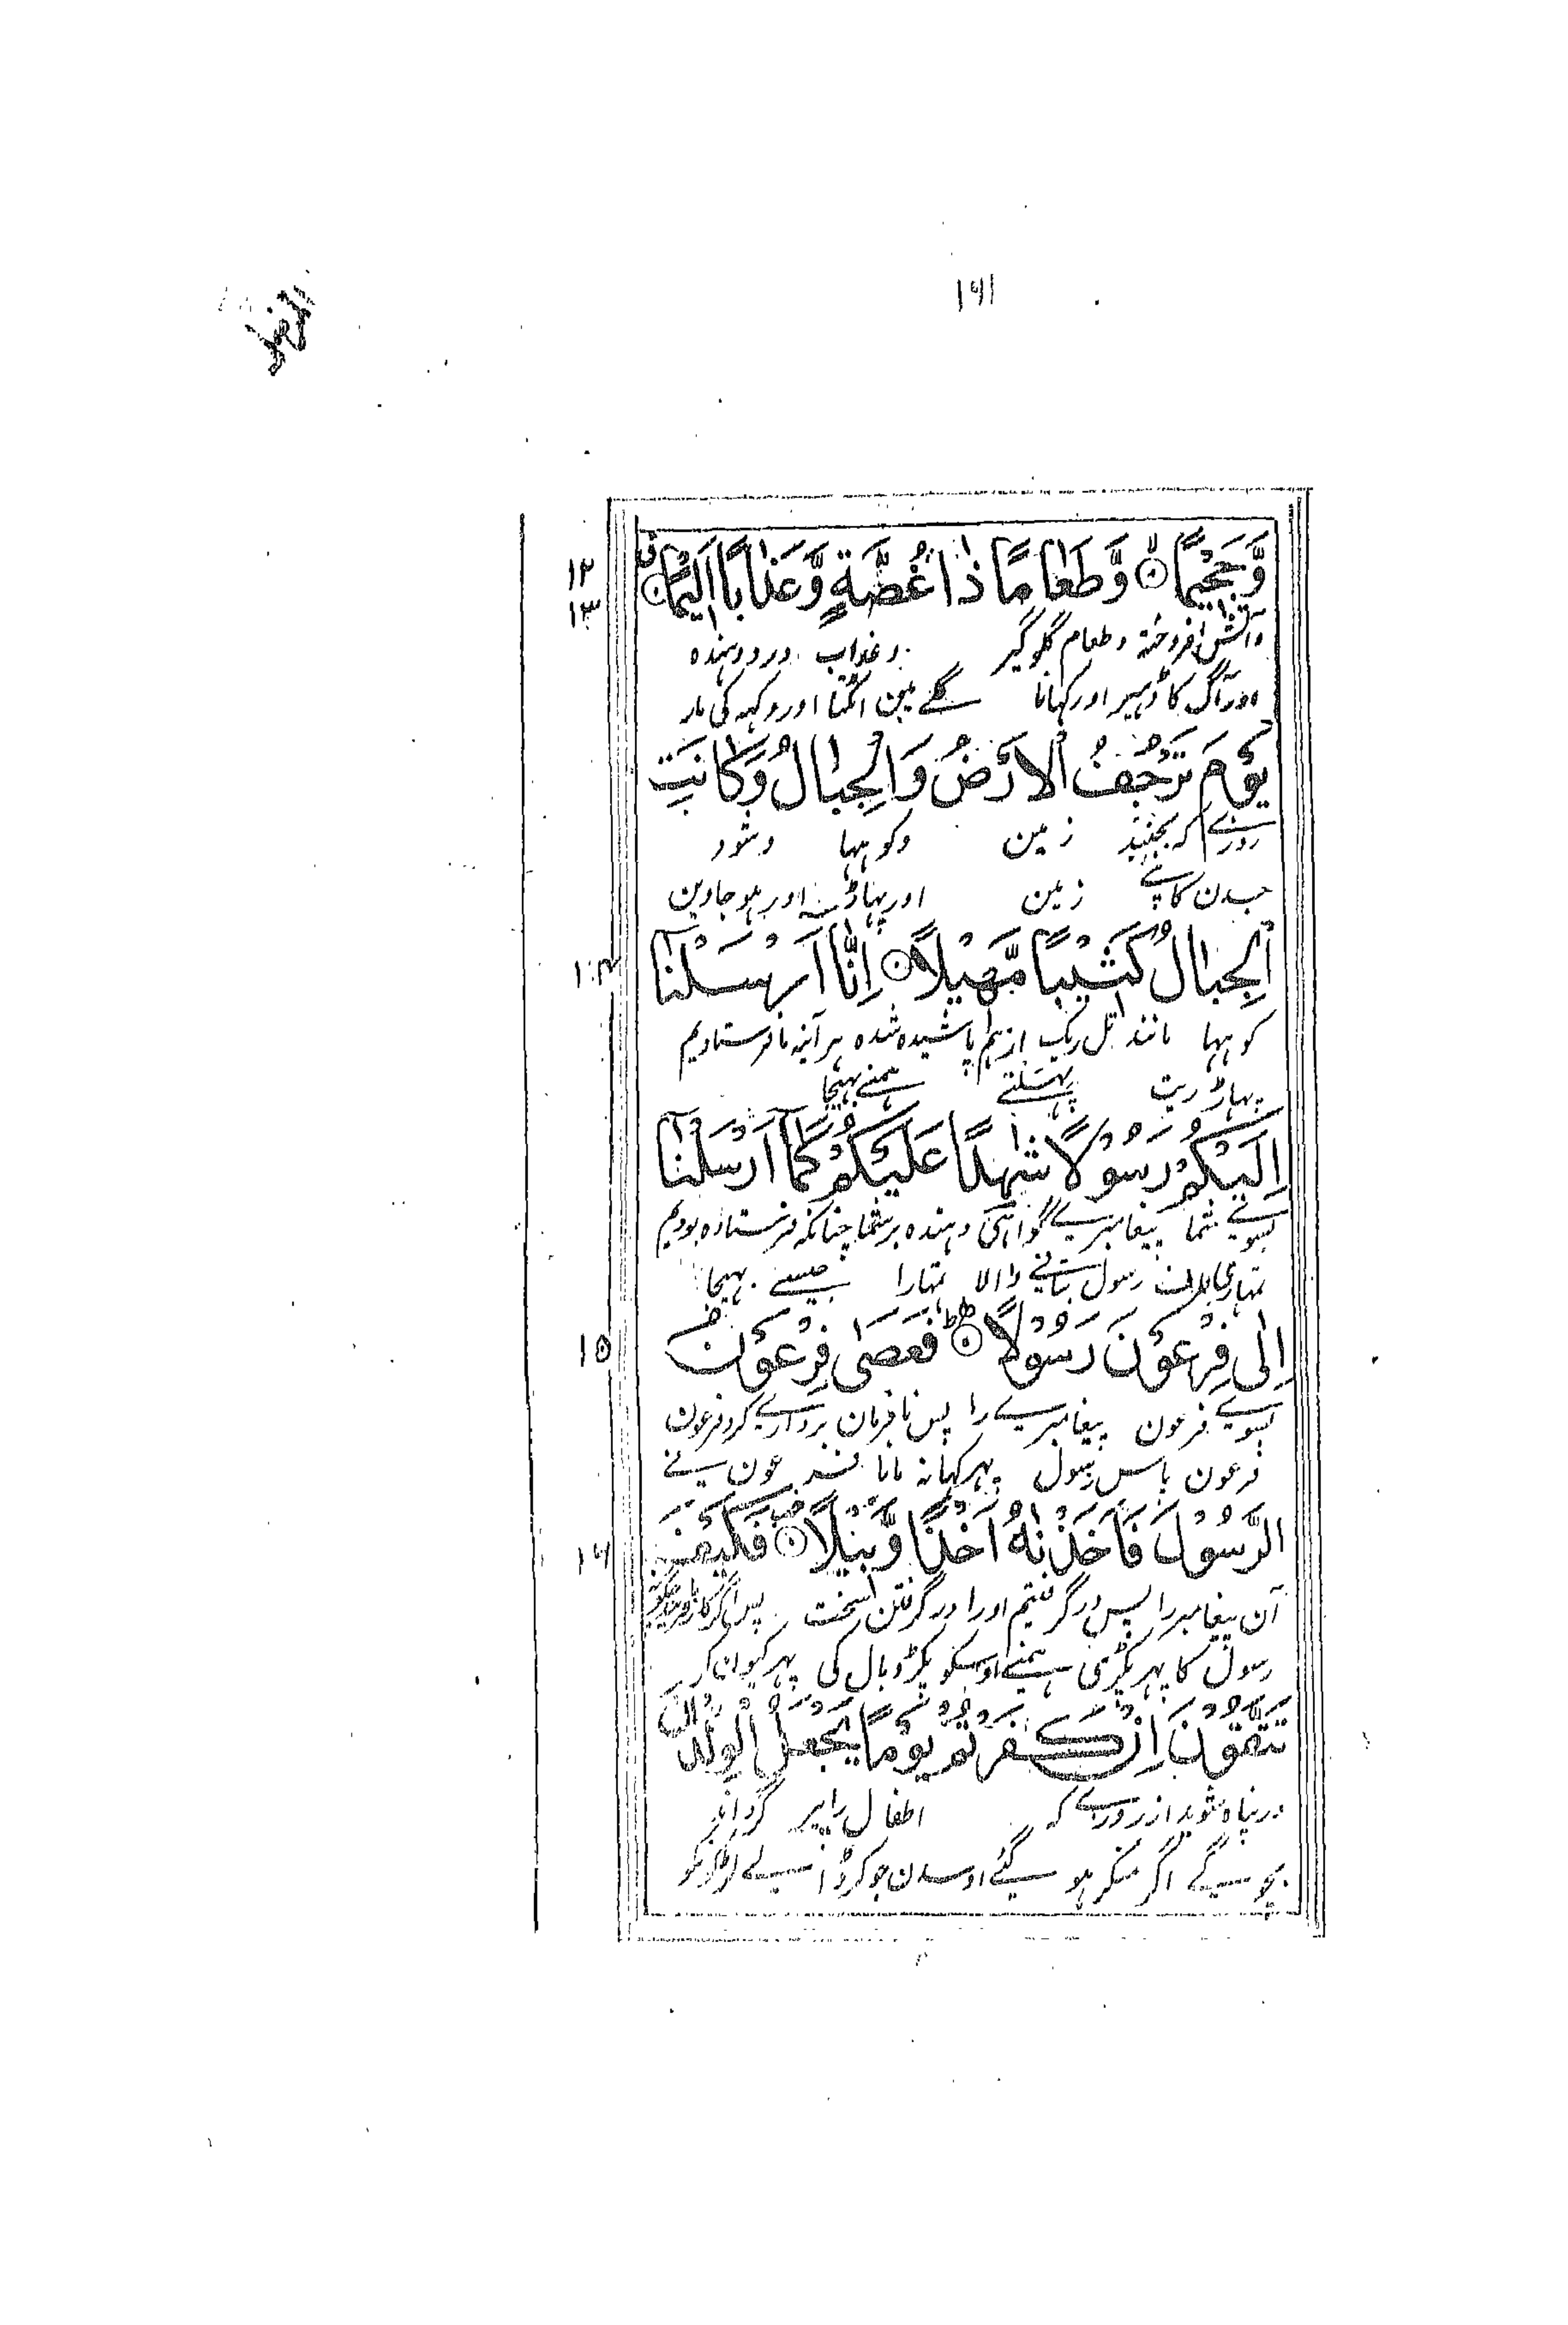 ۱۶۱
وَّجَحِیْمًا ۙ وَّطَعَامًا ذَا غُصَّةٍ وَّعَذَابًا اَلِیْمًا ۱۲ ۱۳
وآتش افروخته وطعام گلوگیر وعذاب درد دہندہ
اور آگ کا ڈہیر اور کہانا گلے مین اٹکتا اور دکہہ کی مار
یَوْمَ تَرْجُفُ الْاَرْضُ وَالْجِبَالُ وَكَانَتِ
روزے کہ بجنبد زمین وکوہہا وشود
جسدن کانپے زمین اور پہاڑ اور ہو جاوین
الْجِبَالُ كَثِیْبًا مَّهِیْلًا اِنَّاۤ اَرْسَلْنَاۤ ۱۴
کوہہا مانند تل ریگ از ہم پاشیدہ شدہ ہر آئینہ ما فرستادیم
پہاڑ ریت پہسلتے ہمنے بہیجا
اِلَیْكُمْ رَسُوْلًا شَاهِدًا عَلَیْكُمْ كَمَاۤ اَرْسَلْنَاۤ
بسوے شما پیغامبرے گواہی دہندہ بر شما چنانکہ فرستادہ بودیم
تمہاری طرف رسول بتانے والا تمہارا جیسے بہیجا
اِلٰی فِرْعَوْنَ رَسُوْلًا ؕ فَعَصٰی فِرْعَوْنُ ۱۵
بسوے فرعون پیغامبرے را پس نافرمان برداری کرد فرعون
فرعون پاس رسول پہر کہا نہ مانا فرعون نے
الرَّسُوْلَ فَاَخَذْنٰهُ اَخْذًا وَّبِیْلًا فَكَیْفَ ۱۶
آن پیغامبر را پس در گرفتیم او را در گرفتن سخت پس اگر کافر شوید
رسول کا پہر پکڑی ہمنے اوسکو پکڑ وبال کی پہر کیون کر
تَتَّقُوْنَ اِنْ كَفَرْتُمْ یَوْمًا یَّجْعَلُ الْوِلْدَانَ
در پناہ شوید از روزے کہ اطفال را پیر گرداند
بچو گے اگر منکر ہو گئے اوسدن جو کر ڈالے لڑکونکو